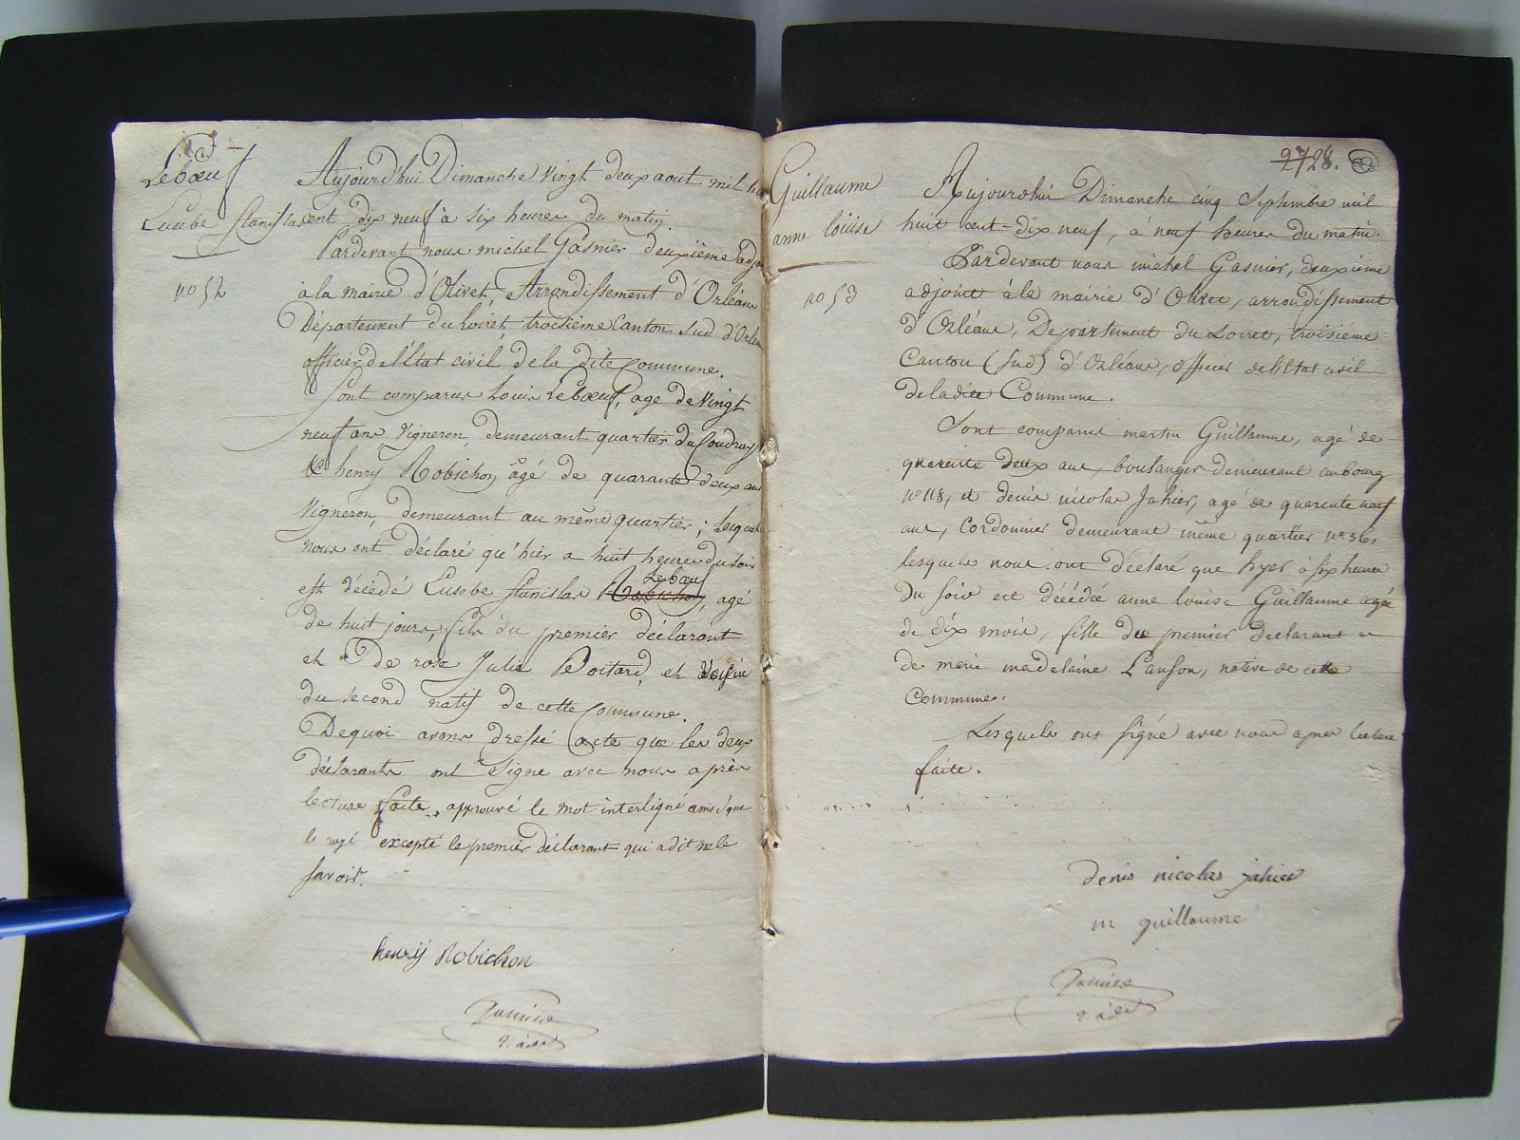 Lebœuf
Eusebe Stanislas
no 52
Aujourd'hui Dimanche vingt deux aout mil
cent dix neuf à six heures du matin.
Pardevant nous michel Gasnier deuxième adjoi
à la mairie d'Olivet, Arrondissement d'Orléans
Département du loiret, troisième Canton sud d'Orléa
officier de l'Etat civil de la dite commune.
Sont comparus Louis Lebœuf, age de vingt
neuf ans vigneron, demeurant quartier du Coudray
henry Robichon, âgé de quarante deux ans
vigneron, demeurant au même quartier; lesquels
nous ont déclaré qu'hier a huit heures du soir
Lebœuf
est décédé Eusebe Stanislas Robichon, agé
de huit jours, fils du premier déclarant
et de rose Julie Boitard, et voisin
du second natif de cette commune.
De quoi avons dressé acte que les deux
déclarants ont signé avec nous après
lecture faite, approuvé le mot interligné ainsi que
le rayé excepté le premier déclarant qui a dit ne le
savoir.
henry Robichon
Gasnier
2. adjt
2728.
Guillaume
anne loüise
no 53
Aujourdhui Dimanche cinq Septembre mil
huit cent-dix neuf, à neuf heures du matin.
Pardevant nous michel Gasnier, deuxième
adjoint à la mairie d'Olivet, arrondissement
d'Orléans, Département du Loiret, troisième
Canton (Sud) d'Orléans, officier de l'Etat civil
de la dite Commune.
Sont comparus martin Guillaume, agé de
quarente deux ans, boulanger demeurant au bourg
no 118, et denis nicolas Jahier, agé de quarente neuf
ans, Cordonnier demeurant même quartier no 36,
lesquels nous ont déclaré que hyer a six heures
du soir est décédée anne louise Guillaume agée
de dix mois, fille du premier déclarant et
de marie madelaine Lanson, native de cette
commune.
Lesquels ont signé avec nous apres lecture
faite.
denis nicolas jahier
m guillaume
Gasnier
2. adjt